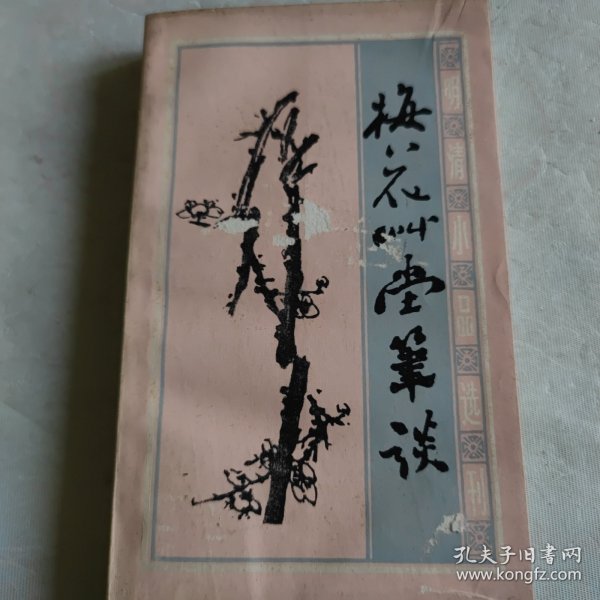 梅花艸堂筆談
明清小品选刊
孔夫子旧书网
www.kongfz.com